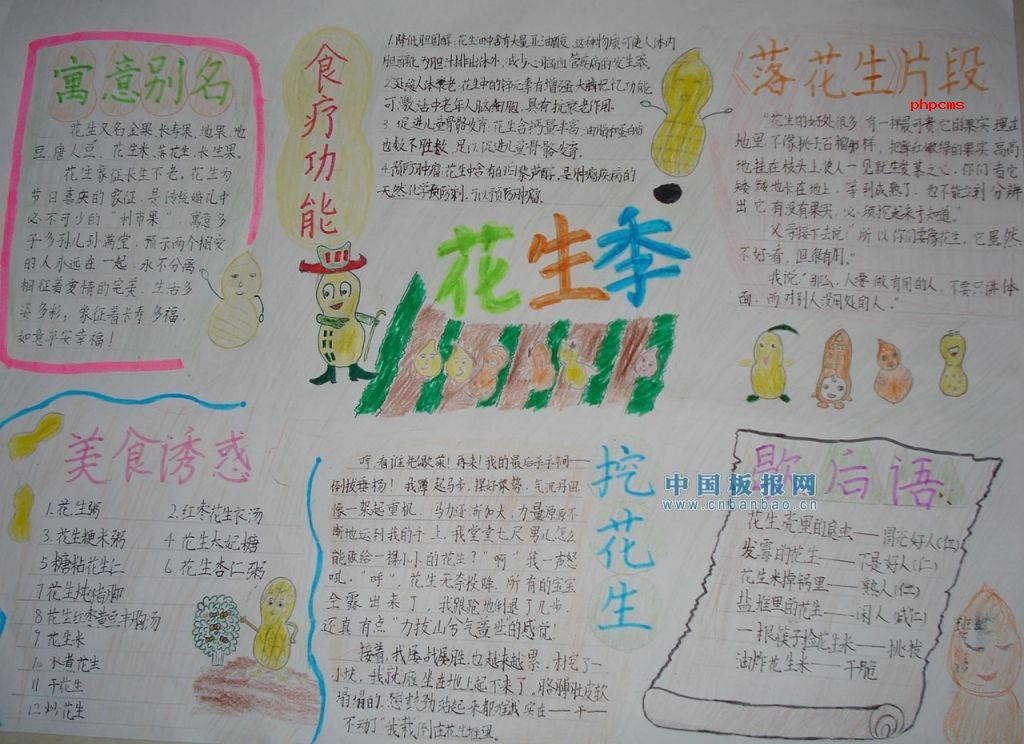 寓意别名
花生又名金果、长寿果、地果、地
豆、唐人豆、花生米、落花生、长生果。
花生象征长生不老。花生为
节日喜庆的象征，是传统婚礼中
必不可少的"利市果"，寓意多
子多孙儿孙满堂，预示两个相爱
的人永远在一起，永不分离
相征着爱情的完美，生活多
姿多彩；象征着长寿多福，
如意平安幸福！
食疗功能
1.降低胆固醇：花生中含有大量亚油酸，这种物质可使人体内
胆固醇为胆汁排出体外，减少心脑血管疾病的发生率
2.延缓人体衰老：花生中的锌元素有增强大脑记忆功能
可激活中老年人脑细胞，具有抗衰老作用
3 促进儿童骨骼发育：花生含钙量丰富，
促进儿童骨骼发育
4.预防肿瘤：花生中含有的白藜芦醇，是肿瘤疾病的
天然化学预防剂，可以预防肿瘤
《落花生》片段
phpcms
"花生的好处很多，有一样最可贵它的果实埋在
地里，不像桃子石榴那样，把鲜红嫩绿的果实高高
地挂在枝头上，使人一见就生爱慕之心，你们看它
矮矮地长在地上，等到成熟了，也不能立刻分辨
出它有没有果实，必须挖起来才知道。"
父亲接下去说："所以你们要像花生，它虽然
不好看，但很有用。"
我说："那么，人要做有用的人，不要只讲体
面，而对别人没用处的人。"
花生季
美食诱惑
1.花生粥
2.红枣花生衣汤
3.花生粳米粥
4 花生太妃糖
5 糖粘花生仁
6 花生杏仁粥
7 花生炖猪脚
8 花生红枣黄豆丰胸汤
9 花生米
10 水煮花生
11 干花生
12.炒花生
挖花生
哼，看谁先歇菜！再来！我的最后杀手锏——
倒拔垂杨！我蹲起马步，摆好架势，气沉丹田
像一架起重机，马力逐渐加大，力量源源不
断地运到我的手上，我堂堂七尺男儿怎么
能败给一棵小小的花生？"啊"我一声怒
吼，"呼"，花生无奈投降，所有的宝宝
全露出来了，我踉跄地倒退了几步，
还真有点"力拔山兮气盖世的感觉！
接着，我屡战屡胜，也越来越累，才挖了一
小块，我就瘫坐在地上起不来了，胳膊肚皮软
塌塌的，想站起来都难，我实在——干——
不动了"我栽倒在花生堆里。
中国板报网
www.cnbanbao.cn
歇后语
花生壳里的蛀虫——固充好人(仁)
发霉的花生——不是好人(仁)
花生米掉锅里——熟人(仁)
盐堆里的花生——闲人(咸仁)
一根筷子捡花生米——挑拨
油炸花生米——干脆